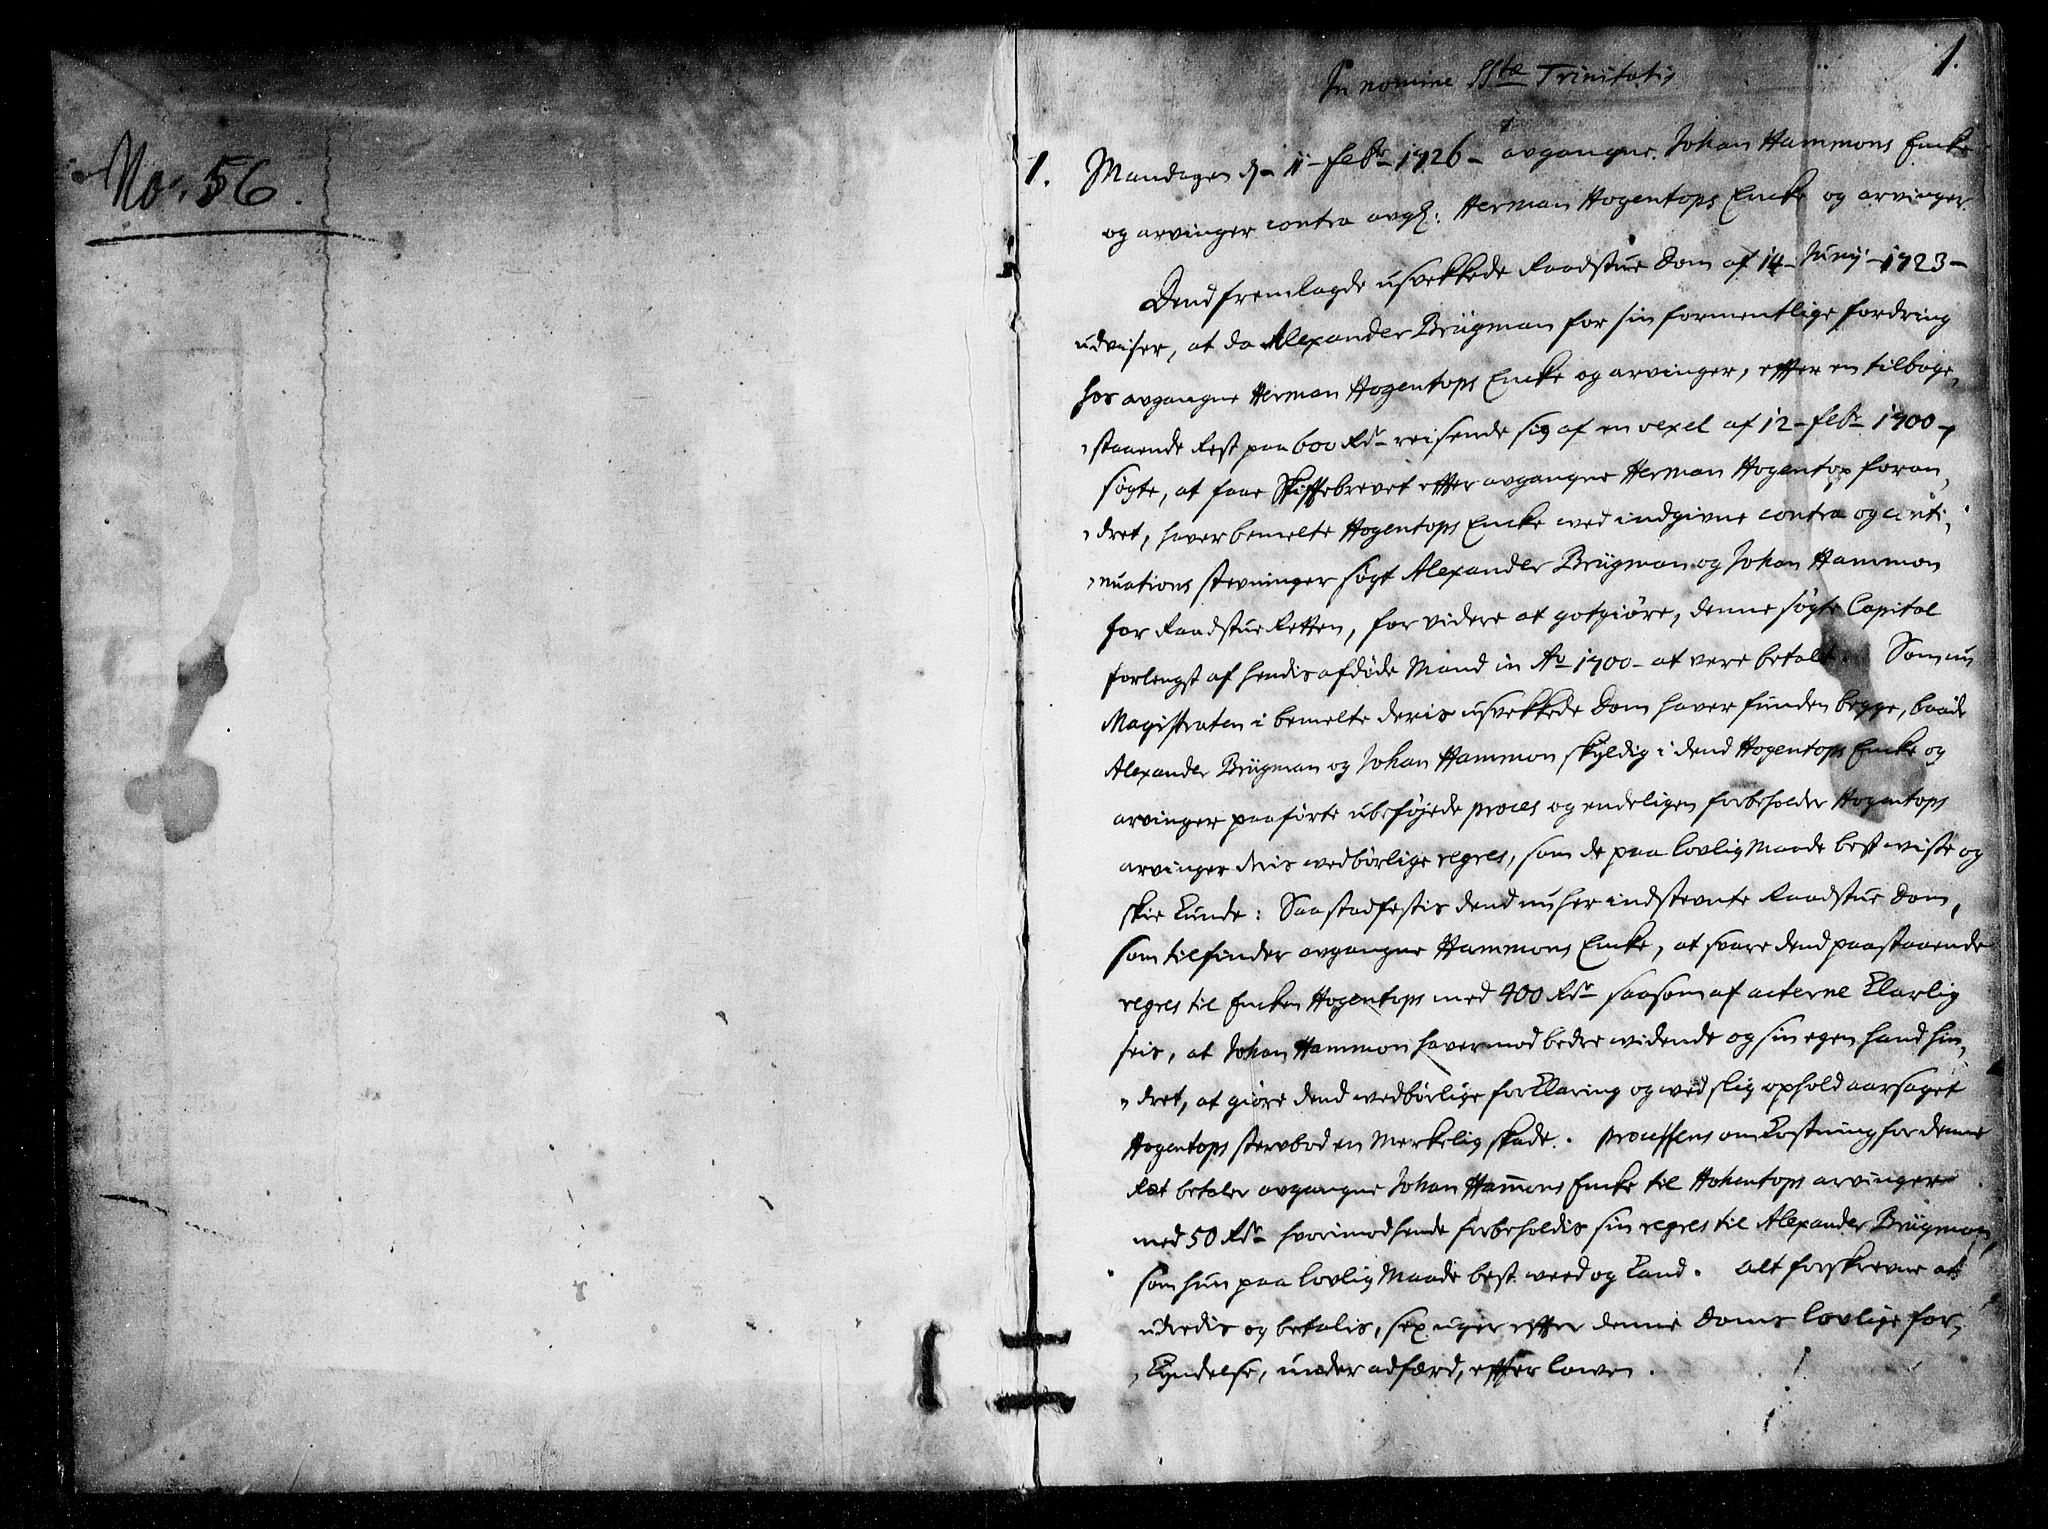 No. 56.
1.
In nomine SSta Trinitatis
1. Mandagen d. 11 Febr 1726 avgangne Johan Hammons Encke
og arvinger contra avgl: Herman Hogentops Encke og arvinger
Dend fremlagde usvekkede Raadstue Dom af 14 Junij 1723
udviser, at da Alexander Brügman for sin formentlige fordring
hos avgangne Herman Hogentops Encke og arvinger, effter en tilbage,
,staaende Rest paa 600 Rdr reisende sig af en vexel af 12 Febr 1700,
søgte, at faae Skifftebrevet effter avgangne Herman Hogentop foran,
,dret, haver bemelte Hogentops Encke wed indgivne contra og conti,
,nuations stevninger søgt Alexander Brügman og Johan Hammon
for RaadstueRetten, for videre at gotgiøre, denne søgte Capital
forlengst af hendis afdøde Mand in Ao 1700 at vere betalt. Som nu
Magistraten i bemelte deris usvekkede Dom haver funden begge, baade
Alexander Brügman og Johan Hammon skyldig i dend Hogentops Encke og
arvinger paaførte ubeføjede proces og endeligen forbeholder Hogentops
arvinger deris wedbørlige regres, som de paa lovlig Maade best wiste og
skie Kunde: Saa stadfestis dend nu her indstevnte Raadstue Dom,
som tilfinder avgangne Hammons Encke, at svare dend paastaaende
regres til Encken Hogentops med 400 Rdr saasom af acterne Klarlig
seis, at Johan Hammon haver mod bedre widende og sin egen haand hin,
,dret, at giøre dend wedbørlige forKlaring og wed slig ophold aarsaget
Hogentops stervbod en Merkelig skade. Processens omKostning for denne
Ræt betaler avgangne Johan Hammons Encke til Hohentops arvinger
med 50 Rdr hvorimod hende forbeholdis sin regres til Alexander Brügman,
som hun paa lovlig Maade best weed og Kand. Alt forskrevne at
udredis og betalis, sex uger effter denne Doms lovlige for,
,Kyndelse, under adfærd, effter lowen.